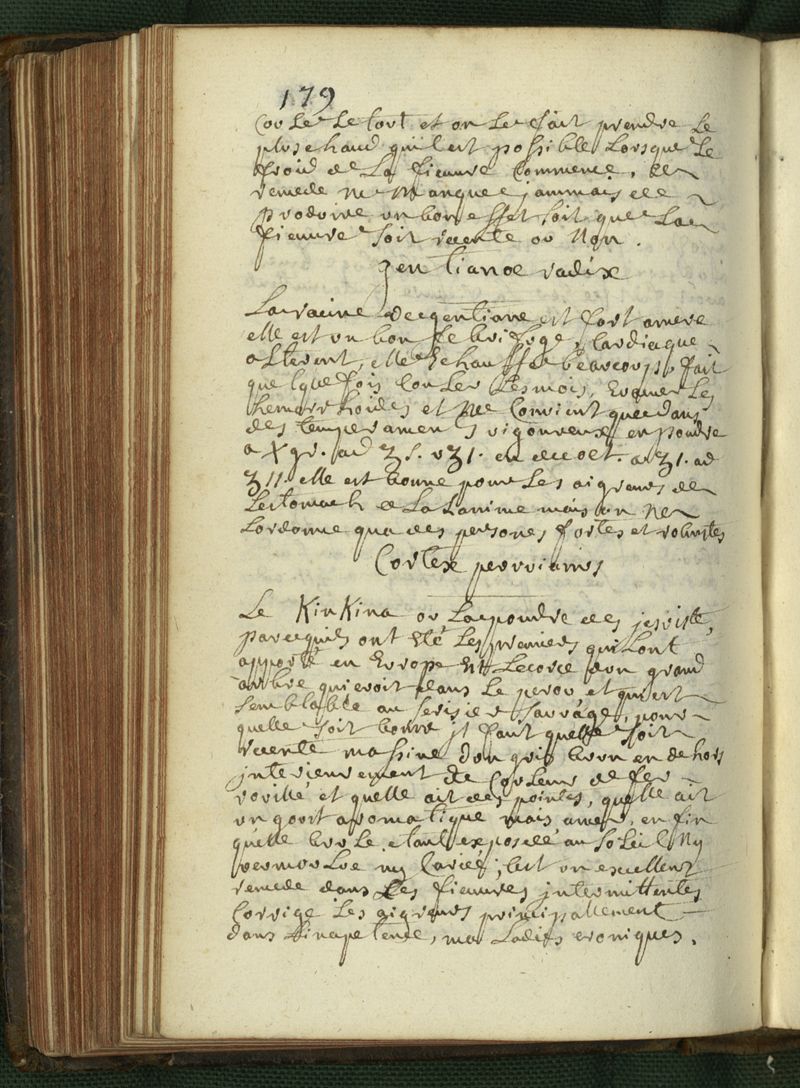 179
Cov Le Le tout et on Le fait prendre Le
plus chaud quil est possible Lorsque Le
froid de La fieuvre Commence. Ce
remede ne Manque jammais de
produire un bon effet soit que La
fieuvre soit recente ou Non.
gentianœ radix
La racine de gentiane est fort amere
elle est un bon febrifuge, Cardiaque
alterent, elle Echauffe beaucoup, fait
quelque fois Couler Les mois, Evamer Les
hemorrhoides et Ne Convient que dans
des temperamens vigoureux en poudre
a X gr. ad ʒ s. v ʒ 1. en decoct. a ʒ 1. ad
ʒ 11. elle est bonne pour Les aigreurs de
Lestomach de La Lanime mais on Ne
Lordonne qua des persones fortes et robustes
Cortex perruianus
Le KinKina ou La poudre des jesviste,
parcequils ont Eté Les premiers qui Lont
apporté en Europe Est Lecorce dun grand
arbre qui croit dans Le perov et qui est
semblable au serisier sauvage, pour
quelle soit bonne jl faut quelle soit
recente massive dun gris brun en dehors
jnterieurement de Couleur de fer
rovillé, et quelle ait des pointes, quelle ait
un goort aromatique mais amer, en fin
quelle brule etant exposeé au soleil Ny
vermovlve ny Cariée; Cest un excellent
remede dans Les fieuvres jntermittentes
Corrige Les aigreurs principallement
dans Linapetence, maladies croniques.